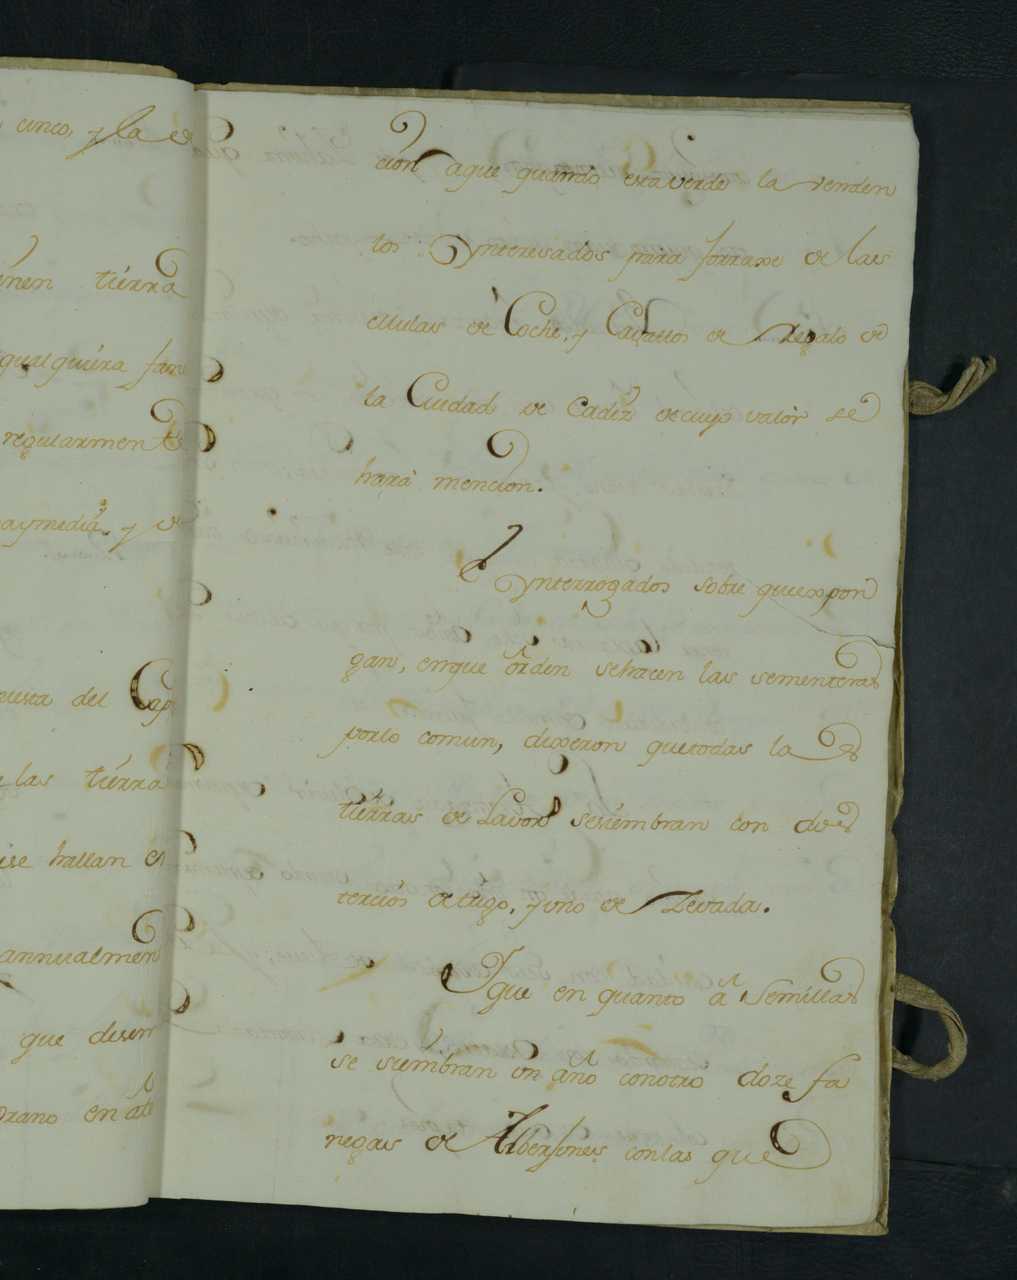 cinco, y la de
enen tierra
qualquiera fan
regularmente
aymedia, y de
uesta del Cap
las tierra
ise hallan en
annualmen
que desem
orano en
cion aque quando esta verde la venden
los Ynteresados para forraxe de las
Mulas de Coche, y Cavallos de Regalo de
la Ciudad de Cadiz decuyo valor se
hará mencion.
E Ynterrogados sobre quexpon
gan, enque órden sehacen las sementeras
porlo comun, dixeron quetodas las
tierras de Lavor sesiembran con dos
tercios detrigo, y uno de Zevada.
Yque en quanto á Semillas
se siembran un año conotro doze fa
negas de Alberjones conlas que